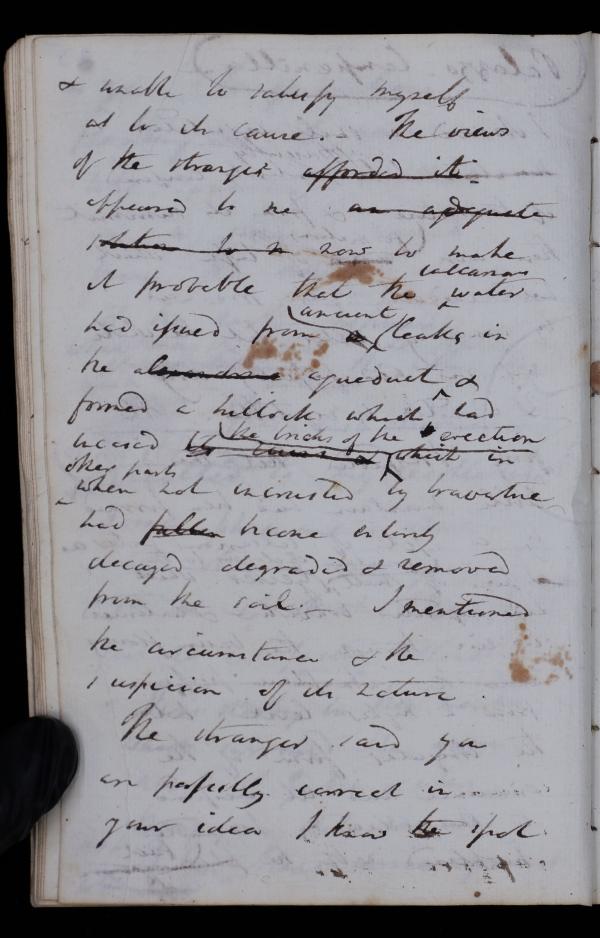 & unable to satisfy myself
as to its cause. - The views
of the stranger afforded it
appeared to me an adequate
solution to m now to make
it probable that the calcareous water
had issued from a ancient leaks in
the aqueduct &
formed a hillock which had
incased the bricks of the erection which in
other parts
when not incrusted by travertine
had fallen become entirely
decayed degraded & removed
from the soil. - I mentioned
the circumstance & the
suspicion of its nature.
The stranger said you
are perfectly correct in
your idea I know the spot